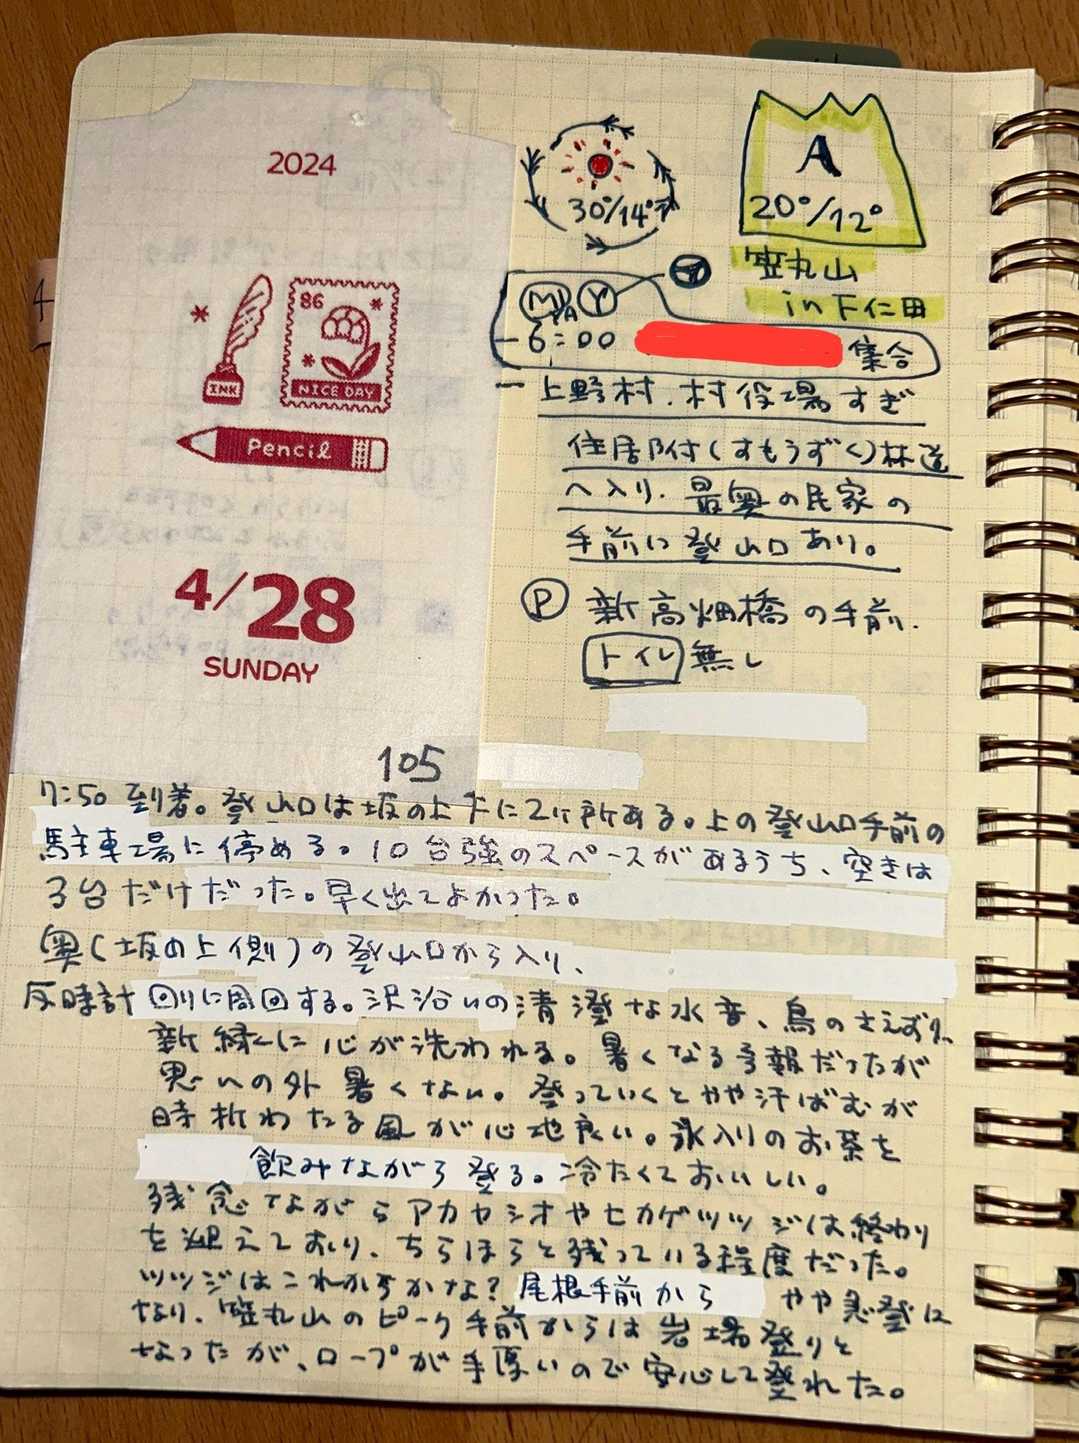 2024
86
INK
NICE DAY
Pencil
4/28
SUNDAY
105
30°/14°
A
20°/12°
笠丸山
in 下仁田
M Y
6:00
集合
上野村、村役場すぎ
住居附(すもうずく)林道
へ入り、最奥の民家の
手前に登山口あり。
P 新高畑橋の手前、
トイレ無し
7:50 到着。登山口は坂の上下に2ヶ所ある。上の登山口手前の
駐車場に停める。10台強のスペースがあるうち、空きは
3台だけだった。早く出てよかった。
奥(坂の上側)の登山口から入り、
反時計回りに周回する。沢沿いの清澄な水音、鳥のさえずり、
新緑に心が洗われる。暑くなる予報だったが
思いの外暑くない。登っていくとやや汗ばむが
時折わたる風が心地良い。氷入りのお茶を
飲みながら登る。冷たくておいしい。
残念ながらアカヤシオやヒカゲツツジは終わり
を迎えており、ちらほらと残っている程度だった。
ツツジはこれからかな?尾根手前から やや急登に
なり、笠丸山のピーク手前からは岩場登りと
なったが、ロープが手厚いので安心して登れた。